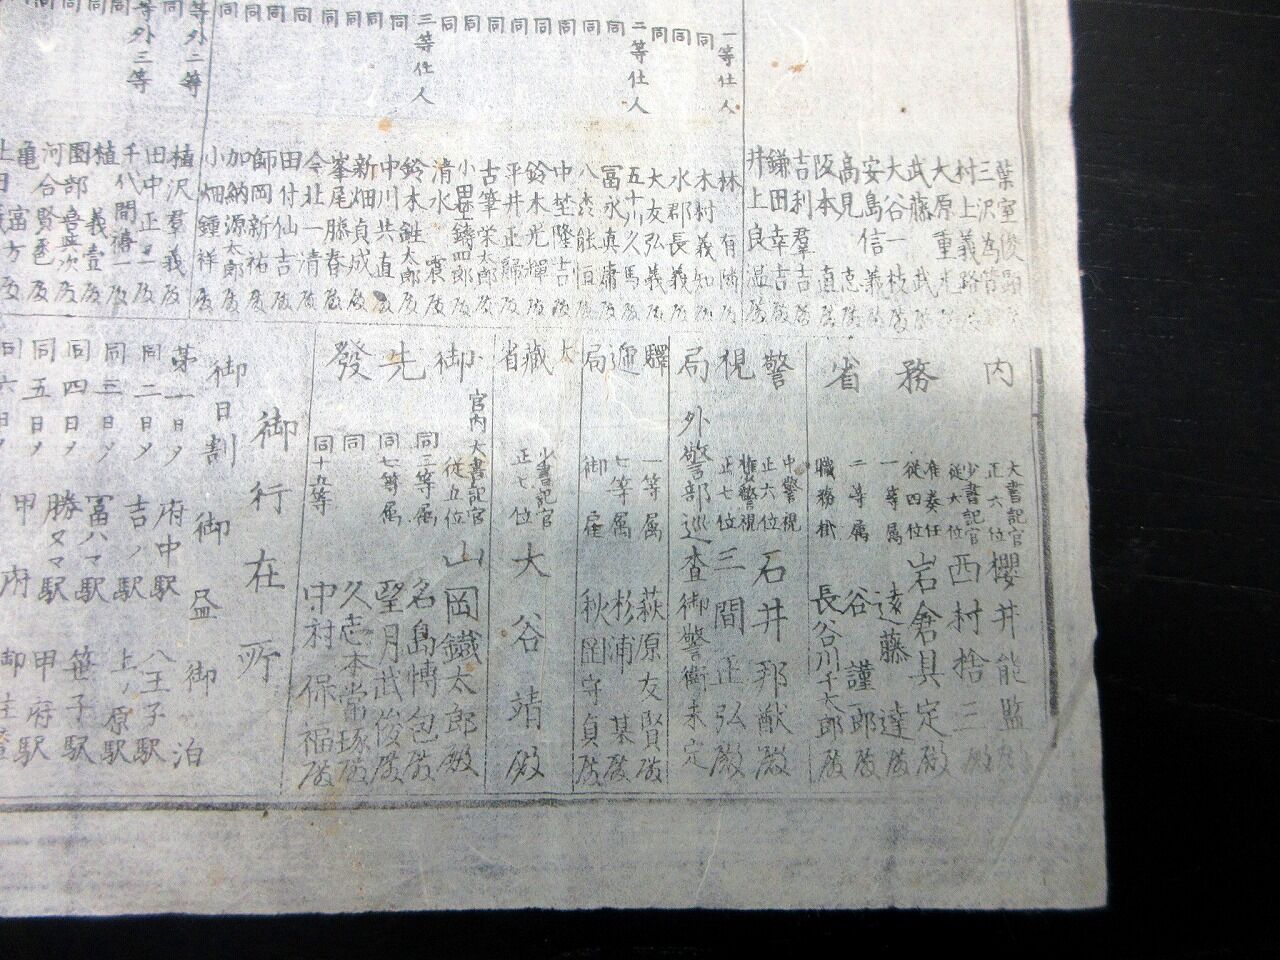 一等仕人
同
同
同
二等仕人
同
同
同
同
同
同
同
三等仕人
同
同
同
同
同
同
同
等外二等
同
等外三等
同
同
同
葉室俊
三沢為
村上義路
大原重
武藤 武
大谷一枝殿
安島信義殿
高見 志殿
阪本 直殿
吉利羣吉殿
鎌田幸吉殿
井上良温殿
林 有
木村義知殿
水郡長義殿
大友弘義殿
五十川久馬殿
冨永真庸殿
八木能恒殿
中埜隆吉殿
鈴木光輝殿
平井正 殿
古筆栄太郎殿
小田切鑄四郎殿
清水 殿
鈴木 太郎殿
中川共直殿
新畑貞成殿
峯尾勝春殿
今北一清殿
田付仙吉殿
師岡新祐殿
加納源太郎殿
小畑鍾祥殿
植沢羣義殿
田中正一殿
千代間 一殿
植 義壹殿
園部 次殿
河合賢 殿
亀 冨
内務省
大書記官
正六位
櫻井能監殿
少書記官
従六位
西村捨三殿
准奏任
従四位
岩倉具定殿
一等属
遠藤 達殿
二等属
谷 謹一郎殿
職務掛
長谷川千太郎殿
警視局
中警視
正六位
石井邦猷殿
権警視
正七位
三間正弘殿
外警部巡査御警衛未定
驛逓局
一等属
萩原友賢殿
七等属
杉浦 某殿
御雇
秋岡守貞殿
大藏省
少書記官
正七位
大谷靖殿
御先發
宮内大書記官
従五位
山岡鐵太郎殿
同三等属
名島愽包殿
同七等属
望月武俊殿
同
久志本常琢殿
同十五等
中村保福殿
御行在所
御日割御昼御泊
第一日メ 府中駅 八王子駅
同二日メ 吉ノ駅 上ノ原駅
同三日メ 冨ハマ駅 笹子駅
同四日メ 勝ヌマ駅 甲府駅
同五日メ 甲府 御
同六日メ